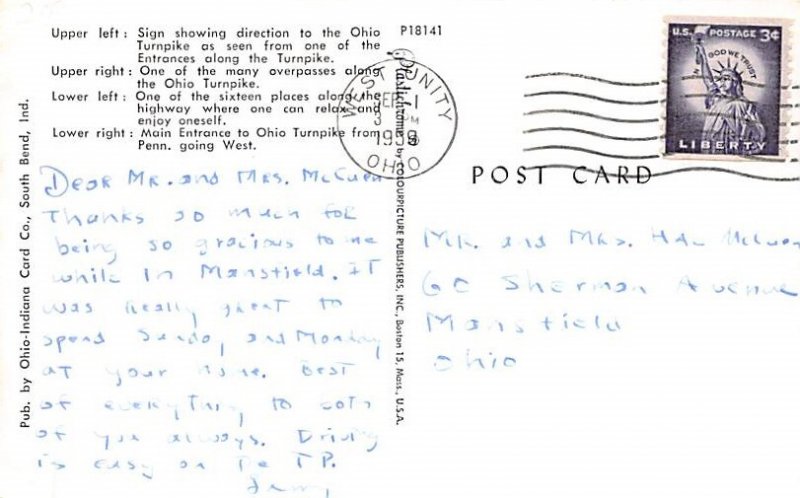 Upper left: Sign showing direction to the Ohio
Turnpike as seen from one of the
Entrances along the Turnpike.
Upper right: One of the many overpasses along
the Ohio Turnpike.
Lower left: One of the sixteen places along the
highway where one can relax and
enjoy oneself.
Lower right: Main Entrance to Ohio Turnpike from
Penn. going West.
P18141
Pub. by Ohio-Indiana Card Co., South Bend, Ind.
Plastichrome by COLOURPICTURE PUBLISHERS, INC., Boston 15, Mass., U.S.A.
WEST UNITY
SEP 1
3 PM
OHIO
U.S. POSTAGE 3¢
IN GOD WE TRUST
LIBERTY
POST CARD
Dear Mr. and Mrs. McCuen
Thanks so much for
being so gracious to me
while in Mansfield. It
was really great to
spend Sunday and Monday
at your home. Best
of everything to both
of you always. Driving
is easy on the TP.
Mr. and Mrs. Hal McCuen
60 Sherman Avenue
Mansfield
Ohio